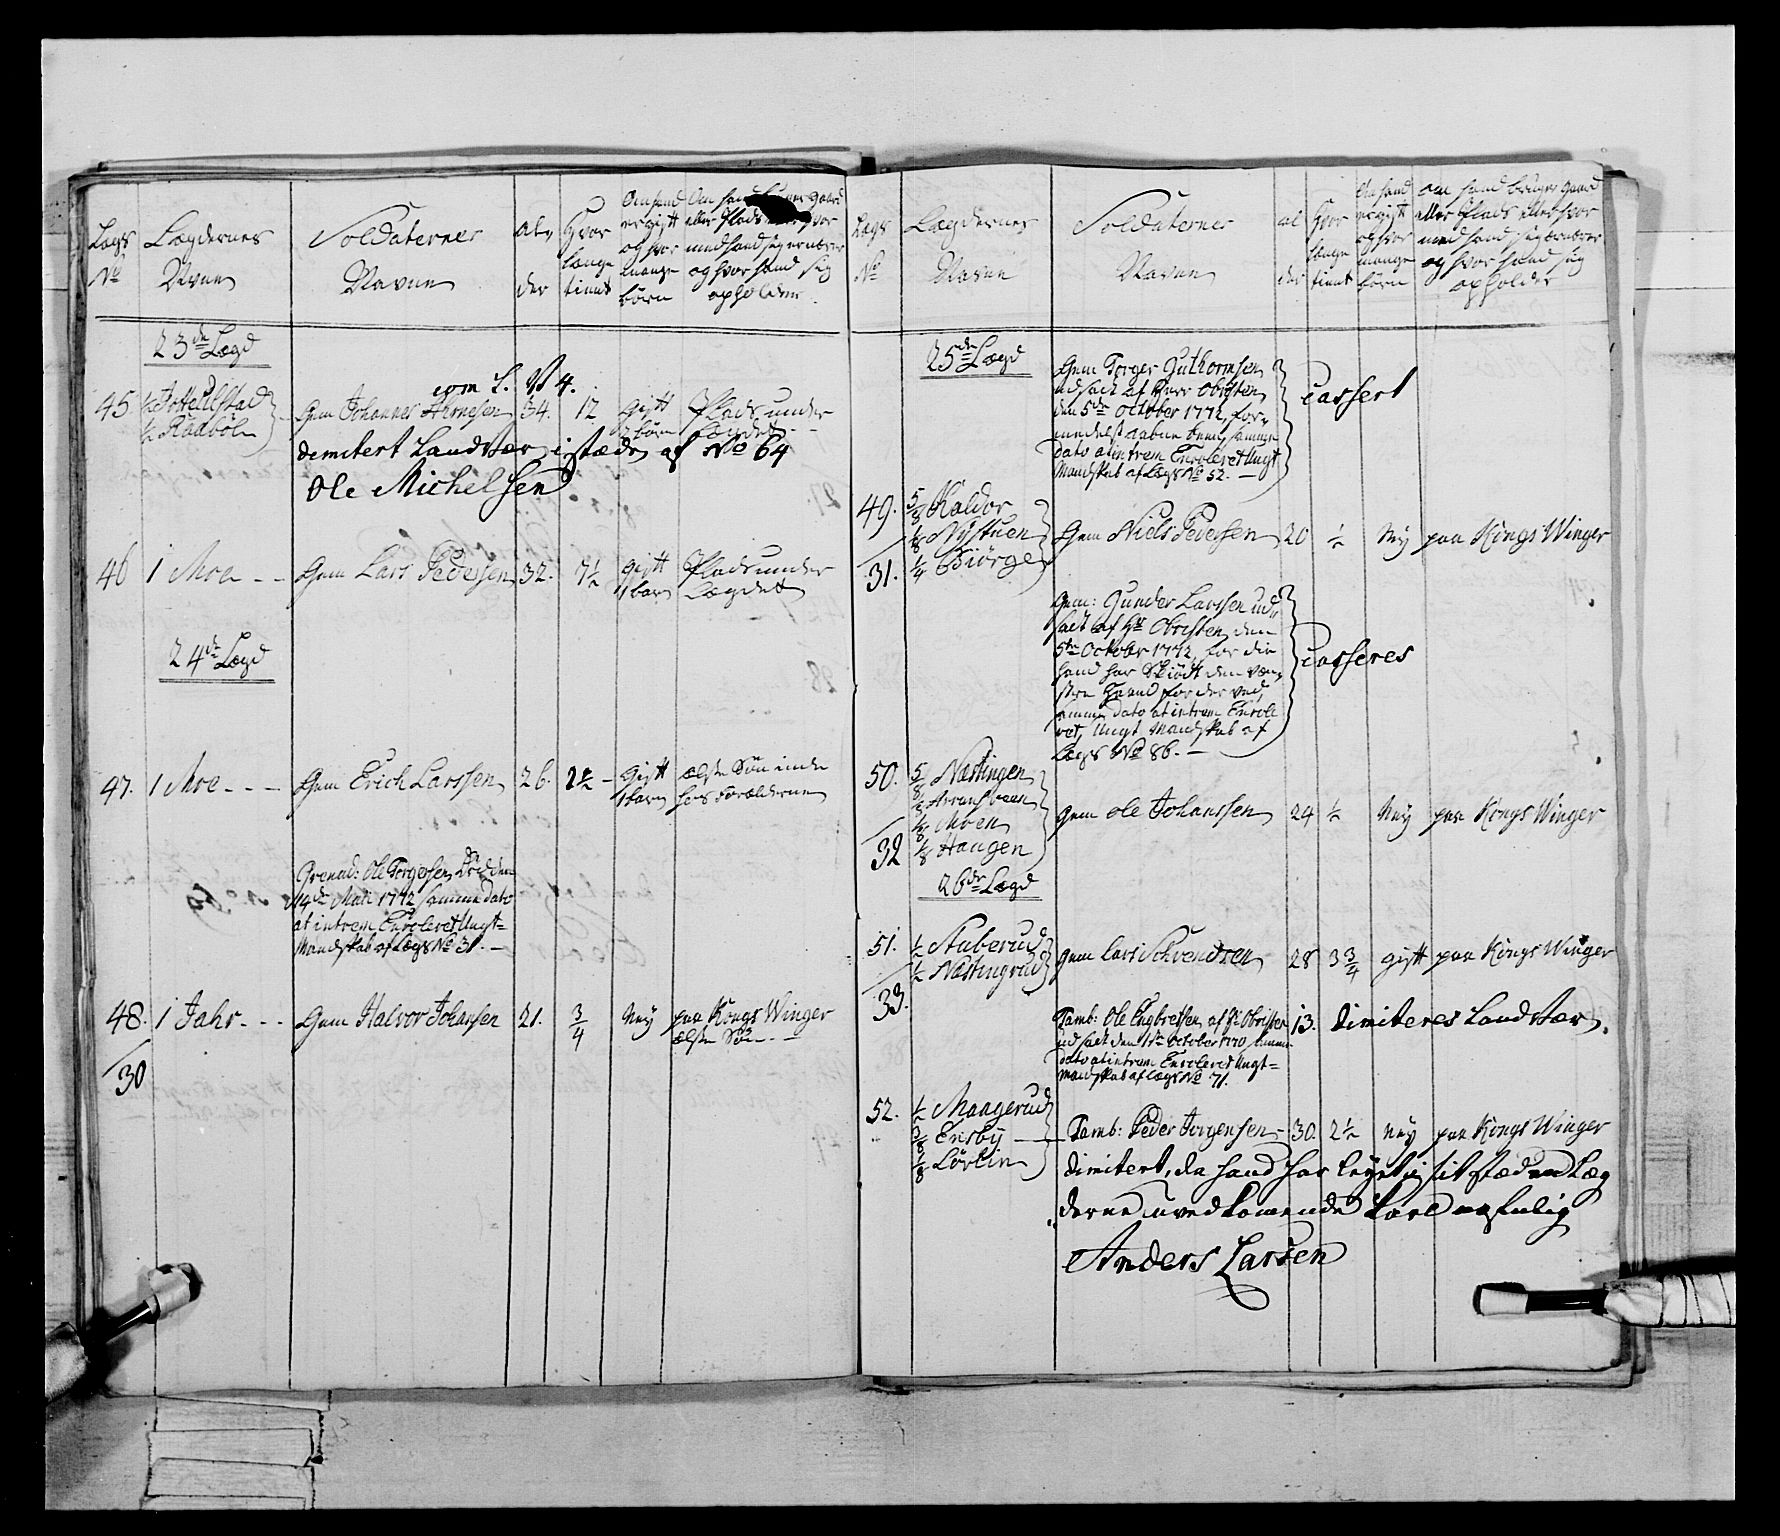 Lægs No
Lægdernes Navne
Soldaternes Navne
Al- der
Hvor længe tient
Om hand er gift og hvor mange børn
Om hand bruger gaard eller Plads eller hvor med hand sig ernærer og hvor hand sig opholder.
23de Lægd
com S. No 4.
45 ½ Totteulstad
½ Raabøl
Gem Johannes Arnesen 34. 12 gift 2 børn Plads under Lægdet
dimitert Landvær i stæden af No 64
Ole Michelsen
46 1 Moe - - Gem Lars Pedersen 32. 7½ gift 1 barn Plads under Lægdet
24de Lægd
47. 1 Moe - - - Gem Erich Larssen 26. 2½ - gift 1 barn ælste Søn inde hos Forælderne
Grenad: Ole Torgersen Død den
14de Maii 1772 samme dato
at intrem Enrolleret Ungt-
Mandskab af Lægs No 31. -
48. 1 Jahr - - - Gem Halvor Johansen 21. 3/4 Ney paa Kongs Winger
ælste Søn - -
30
Lægs No
Lægdernes Navne
Soldaternes Navne
al der
Hvor længe tient
Om hand er gift og hvor mange børn
Om hand bruger gaard eller Plads eller hvor med hand sig ernærer og hvor hand sig opholder
25de Lægd
Gem Torger Guthormsen
udsadt af Herr Obristen
den 5de October 1772, for-
medelst aabne been, samme
dato at intrem Enroleret Ungt
Mandskab af Lægs No 52. -
Cassert
49. 5/8 Kaldor
1/8 Nystuen
1/4 Biørge
Gem Niels Pedersen 20 ½ Ney paa Kongs Winger
31.
Gem: Gunder Larssen ud-
sadt af Hr Obristen den
5te October 1772, for die
hand har Skiødt den ven-
stre Haand fordervet,
samme dato at intrem Enrole
ret, Ungt Mandskab af
Lægs No 86. -
Casseres
50. 5/8 Næstingen
1/8 Arransveen
1/8 Moen
1/8 Haugen
Gem Ole Johanssen 24 ½ Ney paa Kongs Winger
32
26de Lægd
51. ½ Stuberud
½ Næstingrud
Gem Lars Schvendsen 28 3 3/4 gift paa Kongs Winger
33.
Tamb: Ole Engbretsen af Hr Obristen
udsadt den 1te October 1770 samme
dato at intrem Enroleret Ungt-
Mandskab af Lægs No 71.
13. dimiteres Landvær.
52. ½ Maagerud
3/8 Ensby
1/8 Lørlien
Tamb: Peder Jørgensen - 30. 2½ Ney paa Kongs Winger
dimitert, da hand har leyet i sit stæd en Læg
derne uvedkomende Karl nafnlig
Anders Larsen